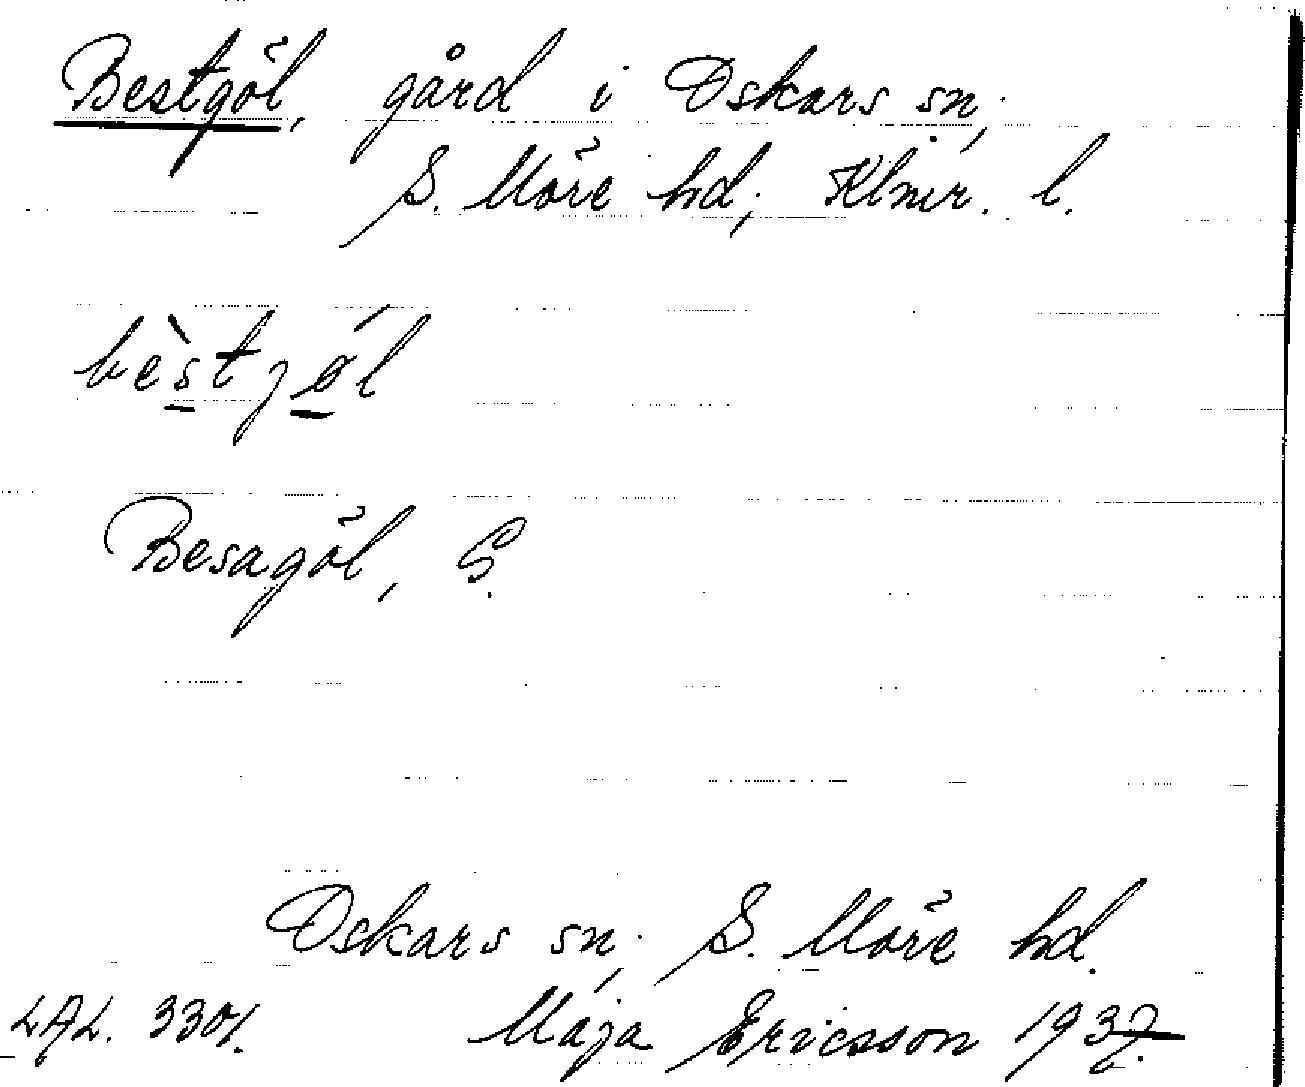 Bestgöl, gård i Oskars sn;
S. Möre hd; Klmr. l.
bèstjǿl
Besagöl, G.
Oskars sn; S. Möre hd.
LAL. 3301. Maja Ericsson 1937.